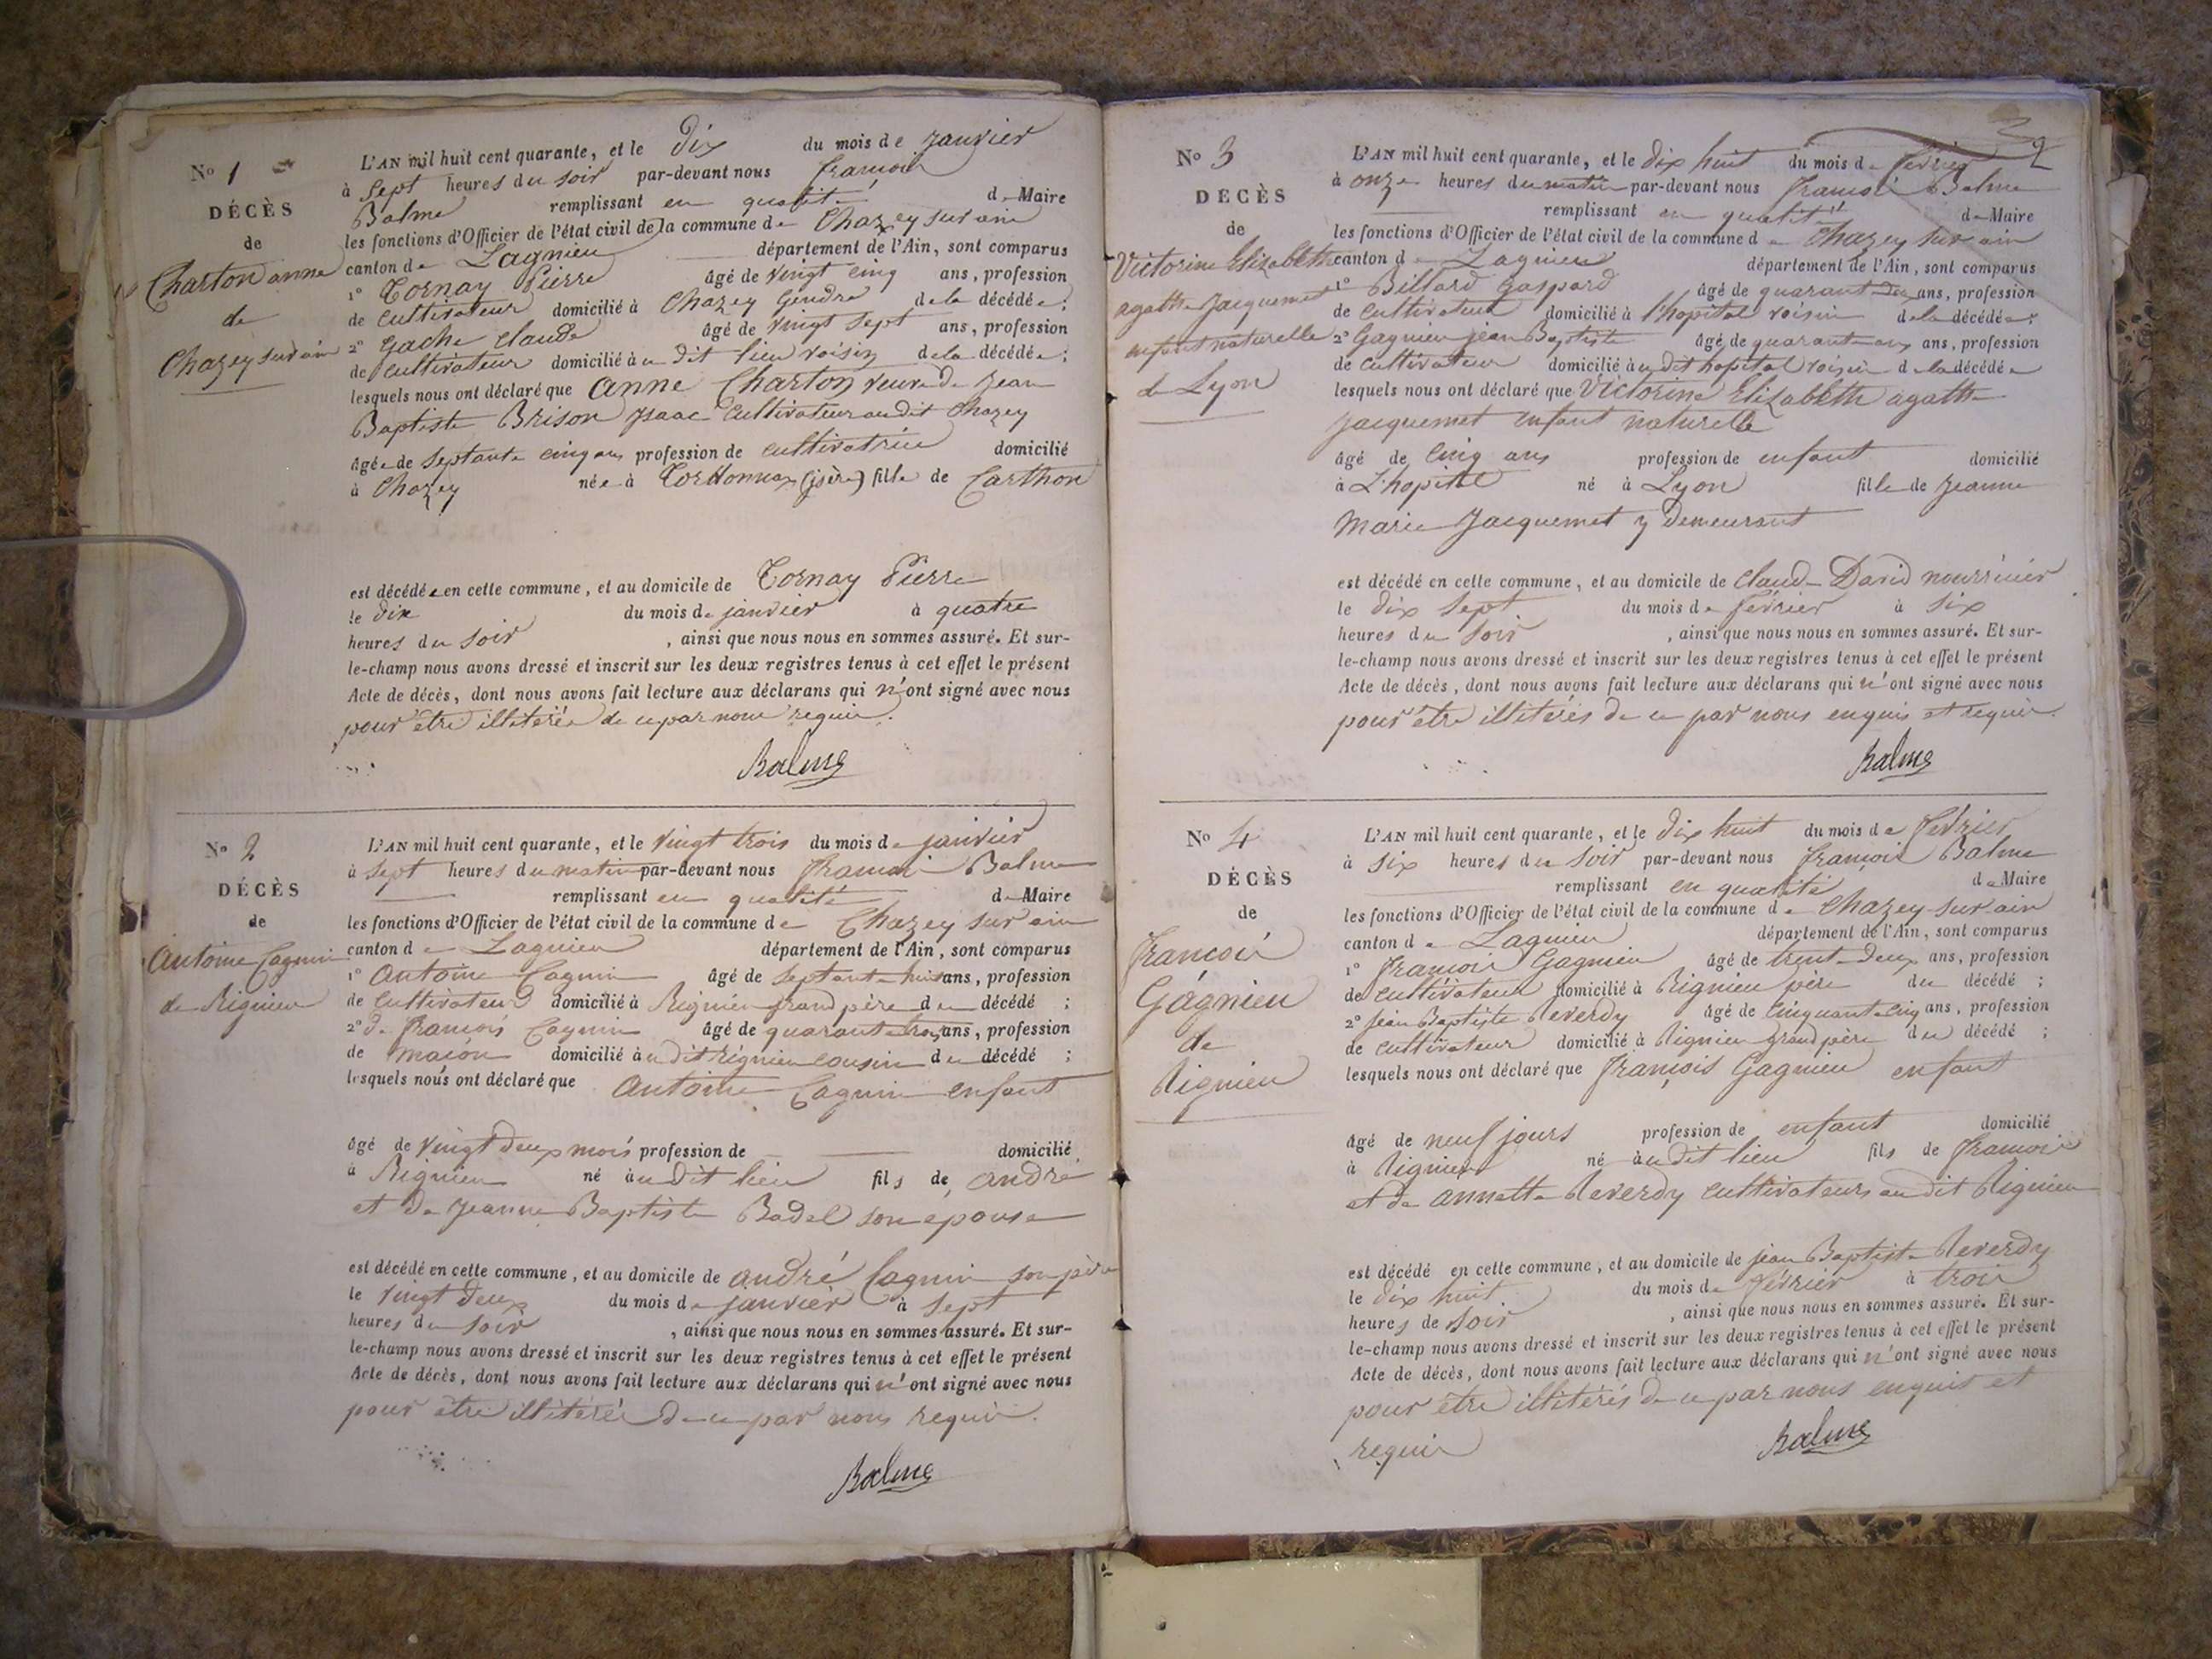 No 1
DÉCÈS
de
Charton anne
de
Chazey sur ain
L'AN mil huit cent quarante, et le dix du mois de janvier
à Sept heures du soir par-devant nous francois
Balme remplissant en qualité de Maire
les fonctions d'Officier de l'état civil de la commune de Chazey sur ain
canton de Lagnieu département de l'Ain, sont comparus
1° Tornay Pierre âgé de vingt cinq ans, profession
de cultivateur domicilié à Chazey Gendre de la décédée ;
2° Gache claude âgé de vingt sept ans, profession
de cultivateur domicilié au dit lieu voisin de la décédée ;
lesquels nous ont déclaré que anne Charton veuve de jean
Baptiste Brison jsaac cultivateur au dit Chazey
âgée de septante cinq ans profession de cultivatrice domicilié
à Chazey née à (jsère) fille de Carthon
est décédée en cette commune, et au domicile de Tornay Pierre
le dix du mois de janvier à quatre
heures du soir , ainsi que nous nous en sommes assuré. Et sur-
le-champ nous avons dressé et inscrit sur les deux registres tenus à cet effet le présent
Acte de décès, dont nous avons fait lecture aux déclarans qui n'ont signé avec nous
pour être illitérés de ce par nous requis.
Balme
No 2
DÉCÈS
de
Antoine Cagnin
de Rignieu
L'AN mil huit cent quarante, et le vingt trois du mois de janvier
à sept heures du matin par-devant nous francois Balme
remplissant en qualité de Maire
les fonctions d'Officier de l'état civil de la commune de Chazey sur ain
canton de Lagnieu département de l'Ain, sont comparus
1° Antoine Cagnin âgé de septante huit ans, profession
de cultivateur domicilié à Rignieu grand père du décédé ;
2° de françois Cagnin âgé de quarante trois ans, profession
de maçon domicilié au dit Rignieu cousin du décédé ;
lesquels nous ont déclaré que Antoine Cagnin enfant
âgé de vingt deux mois profession de domicilié
à Rignieu né au dit lieu fils de andré
et de jeanne Baptiste Badel son epouse
est décédé en cette commune, et au domicile de andré Cagnin son père
le vingt deux du mois de janvier à sept
heures du soir , ainsi que nous nous en sommes assuré. Et sur-
le-champ nous avons dressé et inscrit sur les deux registres tenus à cet effet le présent
Acte de décès, dont nous avons fait lecture aux déclarans qui n'ont signé avec nous
pour être illitérés de ce par nous requis.
Balme
2
No 3
DÉCÈS
de
Victorine Elizabeth
agathe jacquemet
enfant naturelle
de Lyon
L'AN mil huit cent quarante, et le dix huit du mois de février
à onze heures du matin par-devant nous francois Balme
remplissant en qualité de Maire
les fonctions d'Officier de l'état civil de la commune de Chazey sur ain
canton de Lagnieu département de l'Ain, sont comparus
1° Billard Gaspard âgé de quarante ans, profession
de cultivateur domicilié à l'hopital voisin de la décédée ;
2° Gagnieu jean Baptiste âgé de quarante ans, profession
de cultivateur domicilié au dit hopital voisin de la décédée
lesquels nous ont déclaré que Victorine Elizabeth agathe
jacquemet enfant naturelle
âgé de cinq ans profession de enfant domicilié
à L'hopital né à Lyon fille de jeanne
Marie jacquemet y demeurant
est décédé en cette commune, et au domicile de claude David nourricier
le dix sept du mois de février à six
heures du soir , ainsi que nous nous en sommes assuré. Et sur-
le-champ nous avons dressé et inscrit sur les deux registres tenus à cet effet le présent
Acte de décès, dont nous avons fait lecture aux déclarans qui n'ont signé avec nous
pour être illitérés de ce par nous enquis et requis.
Balme
No 4
DÉCÈS
de
françois
Gagnieu
de
Rignieu
L'AN mil huit cent quarante, et le dix huit du mois de février
à six heures du soir par-devant nous françois Balme
remplissant en qualité de Maire
les fonctions d'Officier de l'état civil de la commune de Chazey sur ain
canton de Lagnieu département de l'Ain, sont comparus
1° françois Gagnieu âgé de trente deux ans, profession
de cultivateur domicilié à Rignieu père du décédé ;
2° jean Baptiste Reverdy âgé de cinquante cinq ans, profession
de cultivateur domicilié à Rignieu grand père du décédé ;
lesquels nous ont déclaré que françois Gagnieu enfant
âgé de neuf jours profession de enfant domicilié
à Rignieu né au dit lieu fils de francois
et de annette Reverdy cultivateurs au dit Rignieu
est décédé en cette commune, et au domicile de jean Baptiste Reverdy
le dix huit du mois de février à trois
heures de soir , ainsi que nous nous en sommes assuré. Et sur-
le-champ nous avons dressé et inscrit sur les deux registres tenus à cet effet le présent
Acte de décès, dont nous avons fait lecture aux déclarans qui n'ont signé avec nous
pour être illitérés de ce par nous enquis et
requis
Balme